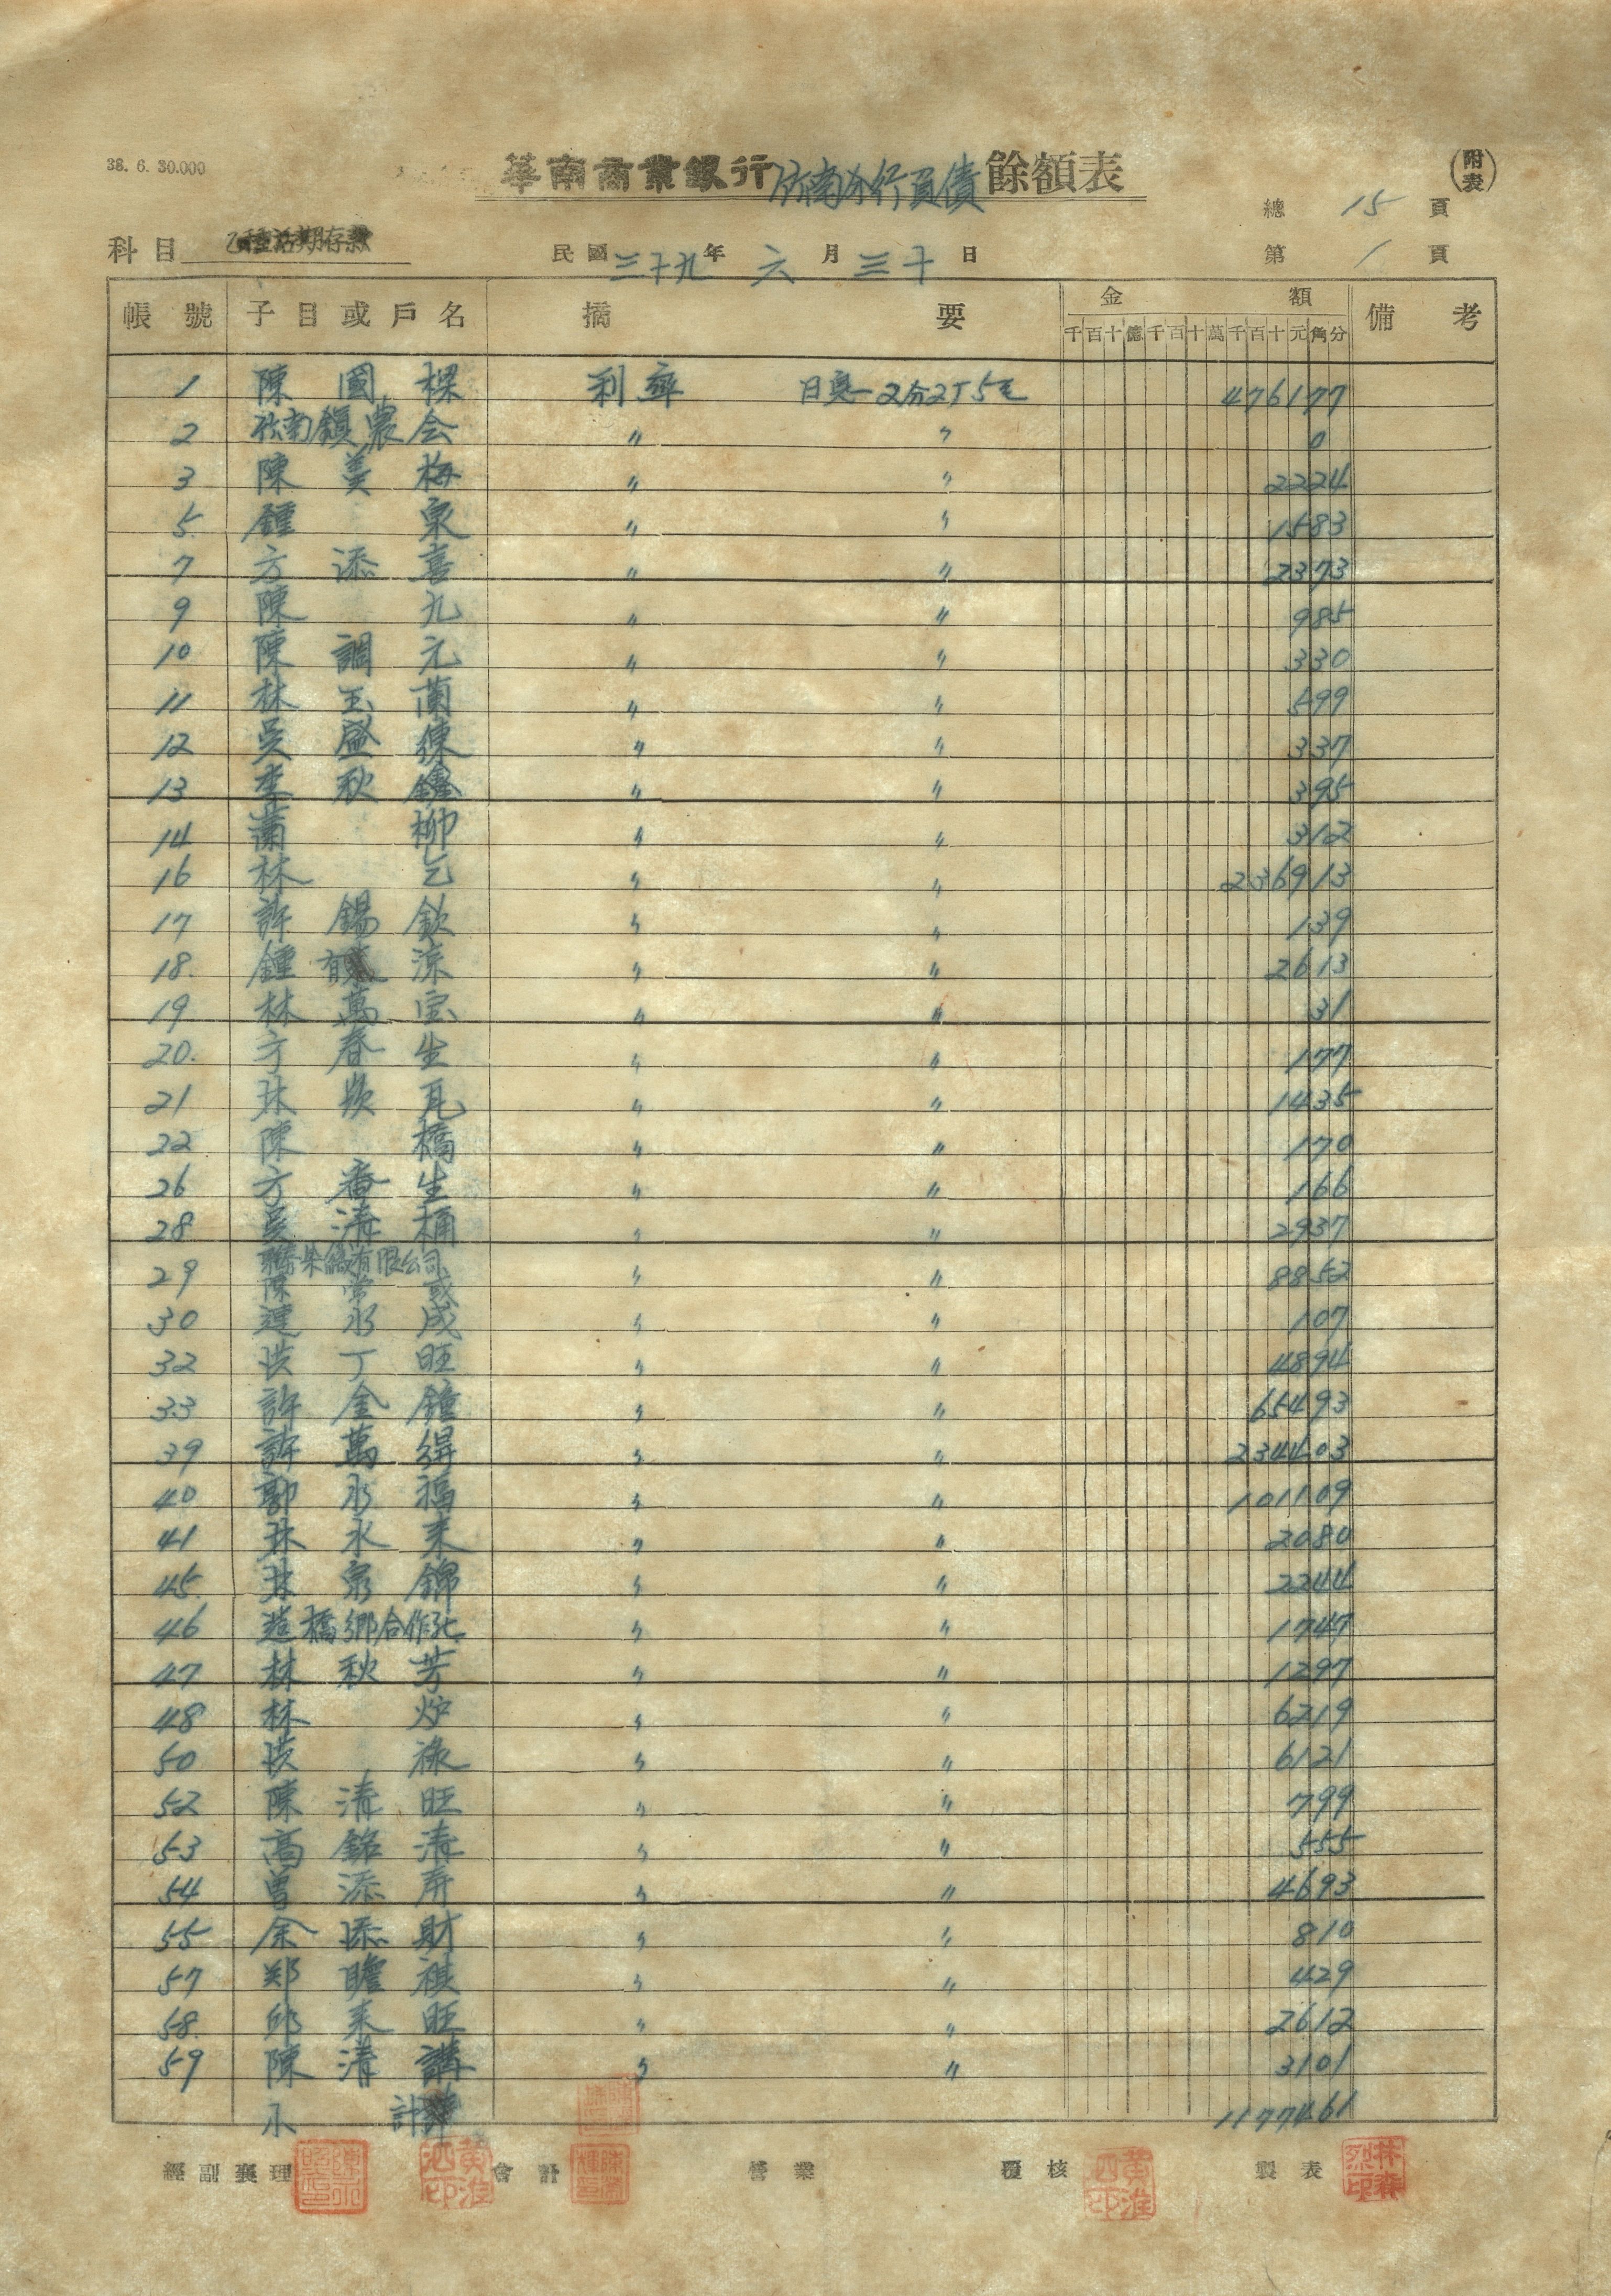 38. 6. 30.000
華南商業銀行竹南分行負債餘額表
(附表)
總 15 頁
科目 乙種活期存款 民國三十九年六月三十日 第 1 頁
帳號 子目或戶名 摘要 金額 備考
千百十億千百十萬千百十元角分
1 陳國樑 利率 日息 2分2丁5毛 476177
2 竹南鎮農会 〃 〃 0
3 陳美梅 〃 〃 2224
5 鍾泉 〃 〃 1583
7 方添喜 〃 〃 2373
9 陳九 〃 〃 985
10 陳調元 〃 〃 330
11 林玉蘭 〃 〃 599
12 吳盛練 〃 〃 337
13 李秋鑫 〃 〃 395
14 蕭柳 〃 〃 312
16 林乞 〃 〃 236913
17 許錫欽 〃 〃 139
18. 鍾有涼 〃 〃 2613
19 林萬宝 〃 〃 31
20. 方春生 〃 〃 177
21 林瓦 〃 〃 1435
22 陳橋 〃 〃 170
26 方番生 〃 〃 166
28 吳清桶 〃 〃 2937
29 有限公司 陳 〃 〃 8852
30 連水成 〃 〃 107
32 洪丁旺 〃 〃 4894
33 許金鐘 〃 〃 65493
39 許萬得 〃 〃 234403
40 郭水福 〃 〃 101109
41 林水來 〃 〃 2080
45. 林泉錦 〃 〃 2244
46 造橋鄉合作社 〃 〃 1747
47 林秋芳 〃 〃 1297
48 林炉 〃 〃 6219
50 洪祿 〃 〃 6121
52 陳清旺 〃 〃 799
53 高銘清 〃 〃 555
54 曾添 〃 〃 4693
55 余添財 〃 〃 810
57 郑瞻祺 〃 〃 429
58. 邱来旺 〃 〃 2612
59 陳清講 〃 〃 3101
小計 1177461
經副襄理 會計 營業 覆核 製表